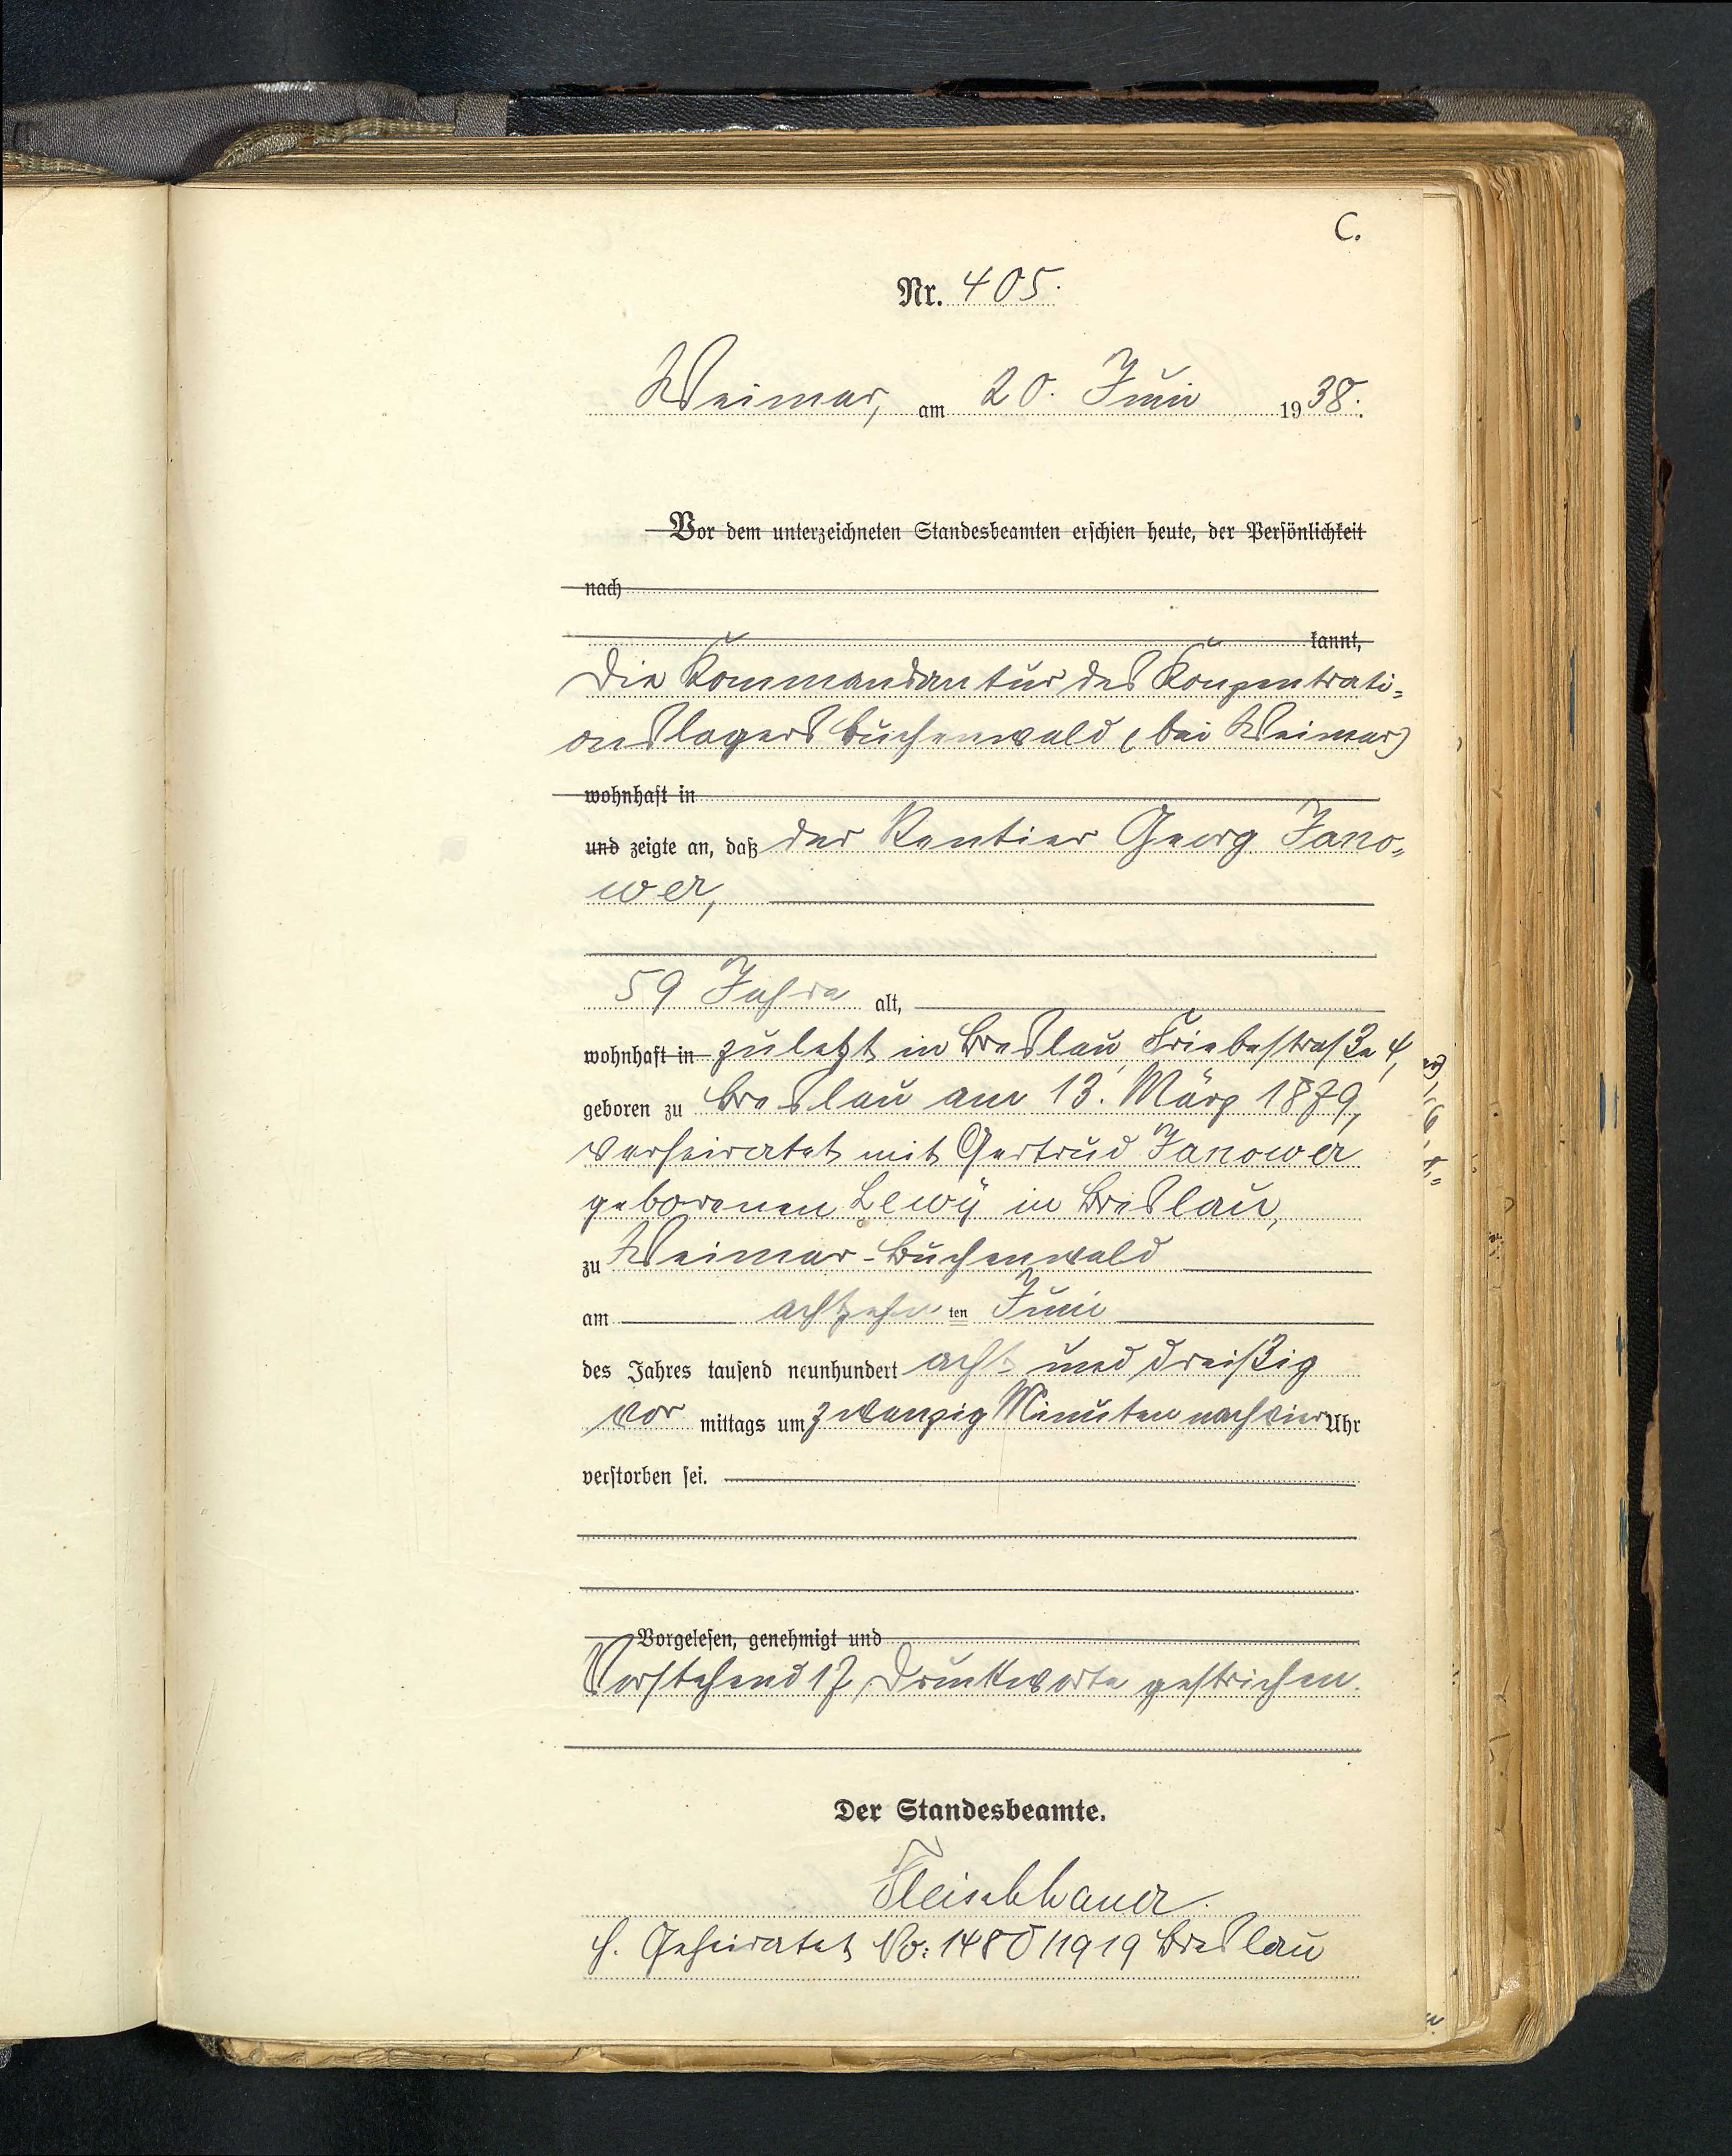 C.
Nr. 405.
Weimar, am 20. Juni 1938.
Vor dem unterzeichneten Standesbeamten erschien heute, der Persönlichkeit
nach
kannt,
Die Kommandantur des Konzentrati-
onslagers Buchenwald (bei Weimar)
wohnhaft in
und zeigte an, daß der Rentier Georg Jano-
wer,
59 Jahre alt,
wohnhaft in zuletzt in Breslau, Friebestraße 4,
geboren zu Breslau am 13. März 1879,
verheiratet mit Gertrud Janower
geborenen Lewÿ in Breslau,
zu Weimar-Buchenwald
am achtzehnten Juni
des Jahres tausend neunhundert acht und dreißig
vor mittags um zwanzig Minuten nach vier Uhr
verstorben sei.
Vorgelesen, genehmigt und
Vorstehend 17 Druckworte gestrichen.
Der Standesbeamte.
Fleischhauer.
H. Geheiratet No: 1480/1919 Breslau